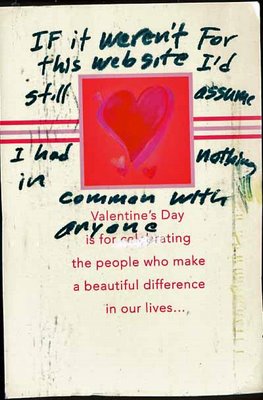 IF it weren't For
this website I'd
still assume
I had nothing
in
common with
anyone
Valentine's Day
is for celebrating
the people who make
a beautiful difference
in our lives...